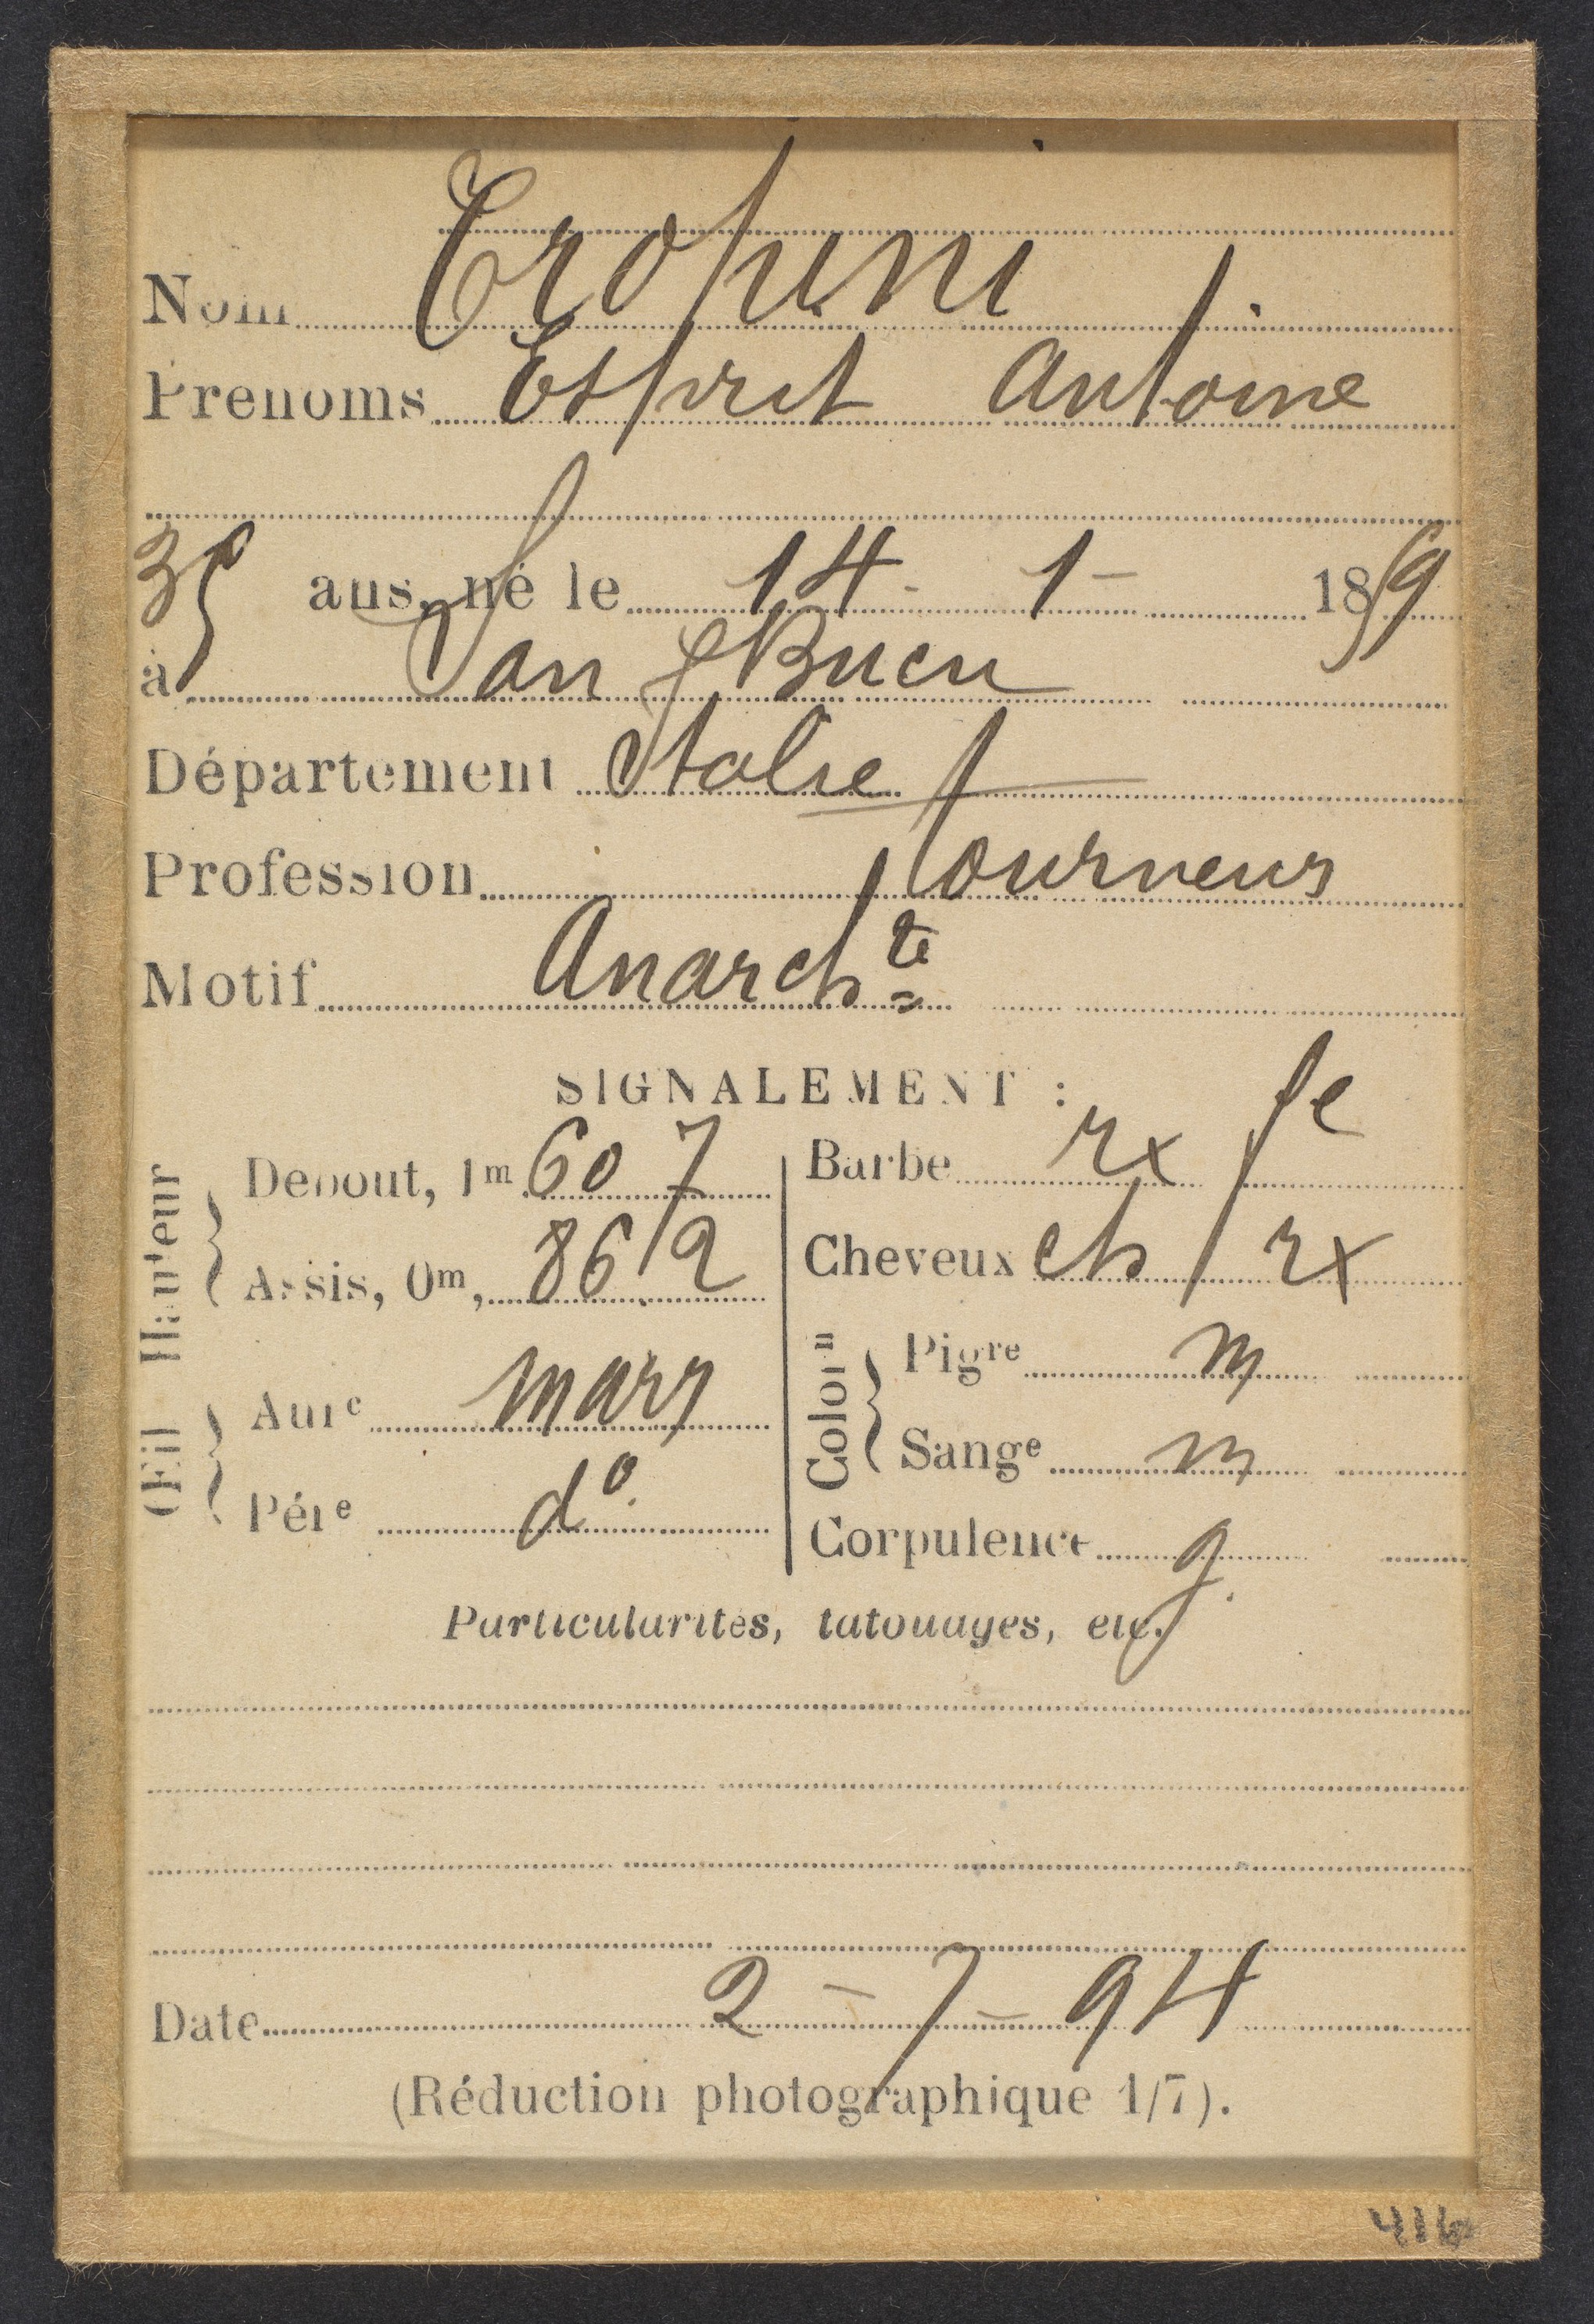 Nom Tropini
Prénoms Esprit Antoine
35 ans, né le 14 - 1 - 1859
à San
Département Italie
Profession tourneur
Motif Anarch te
SIGNALEMENT :
Hauteur
Debout, 1m 60 7
Assis, 0m, 86 2
Œil
Aure marr
Pére do
Barbe rx fe
Cheveux ch rx
Colorn
Pigre m
Sange m
Corpulence g.
Particularités, tatouages, etc.
Date 2 - 7 - 94
(Réduction photographique 1/7).
416